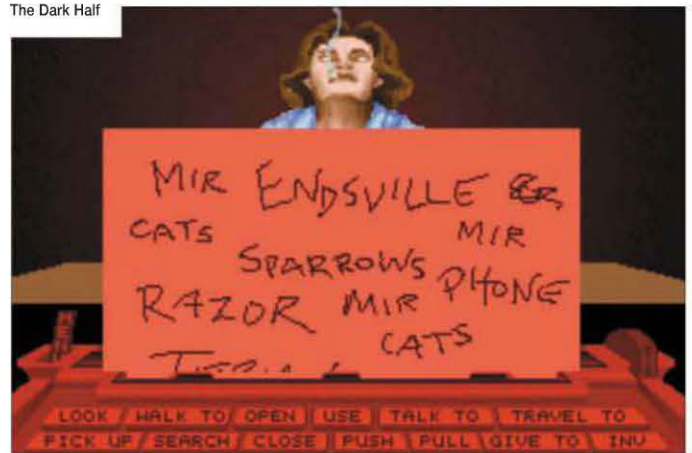 The Dark Half
MIR ENDSVILLE
CATS MIR
SPARROWS PHONE
RAZOR MIR
CATS
LOOK WALK TO OPEN USE TALK TO TRAVEL TO
PICK UP SEARCH CLOSE PUSH PULL GIVE TO INV